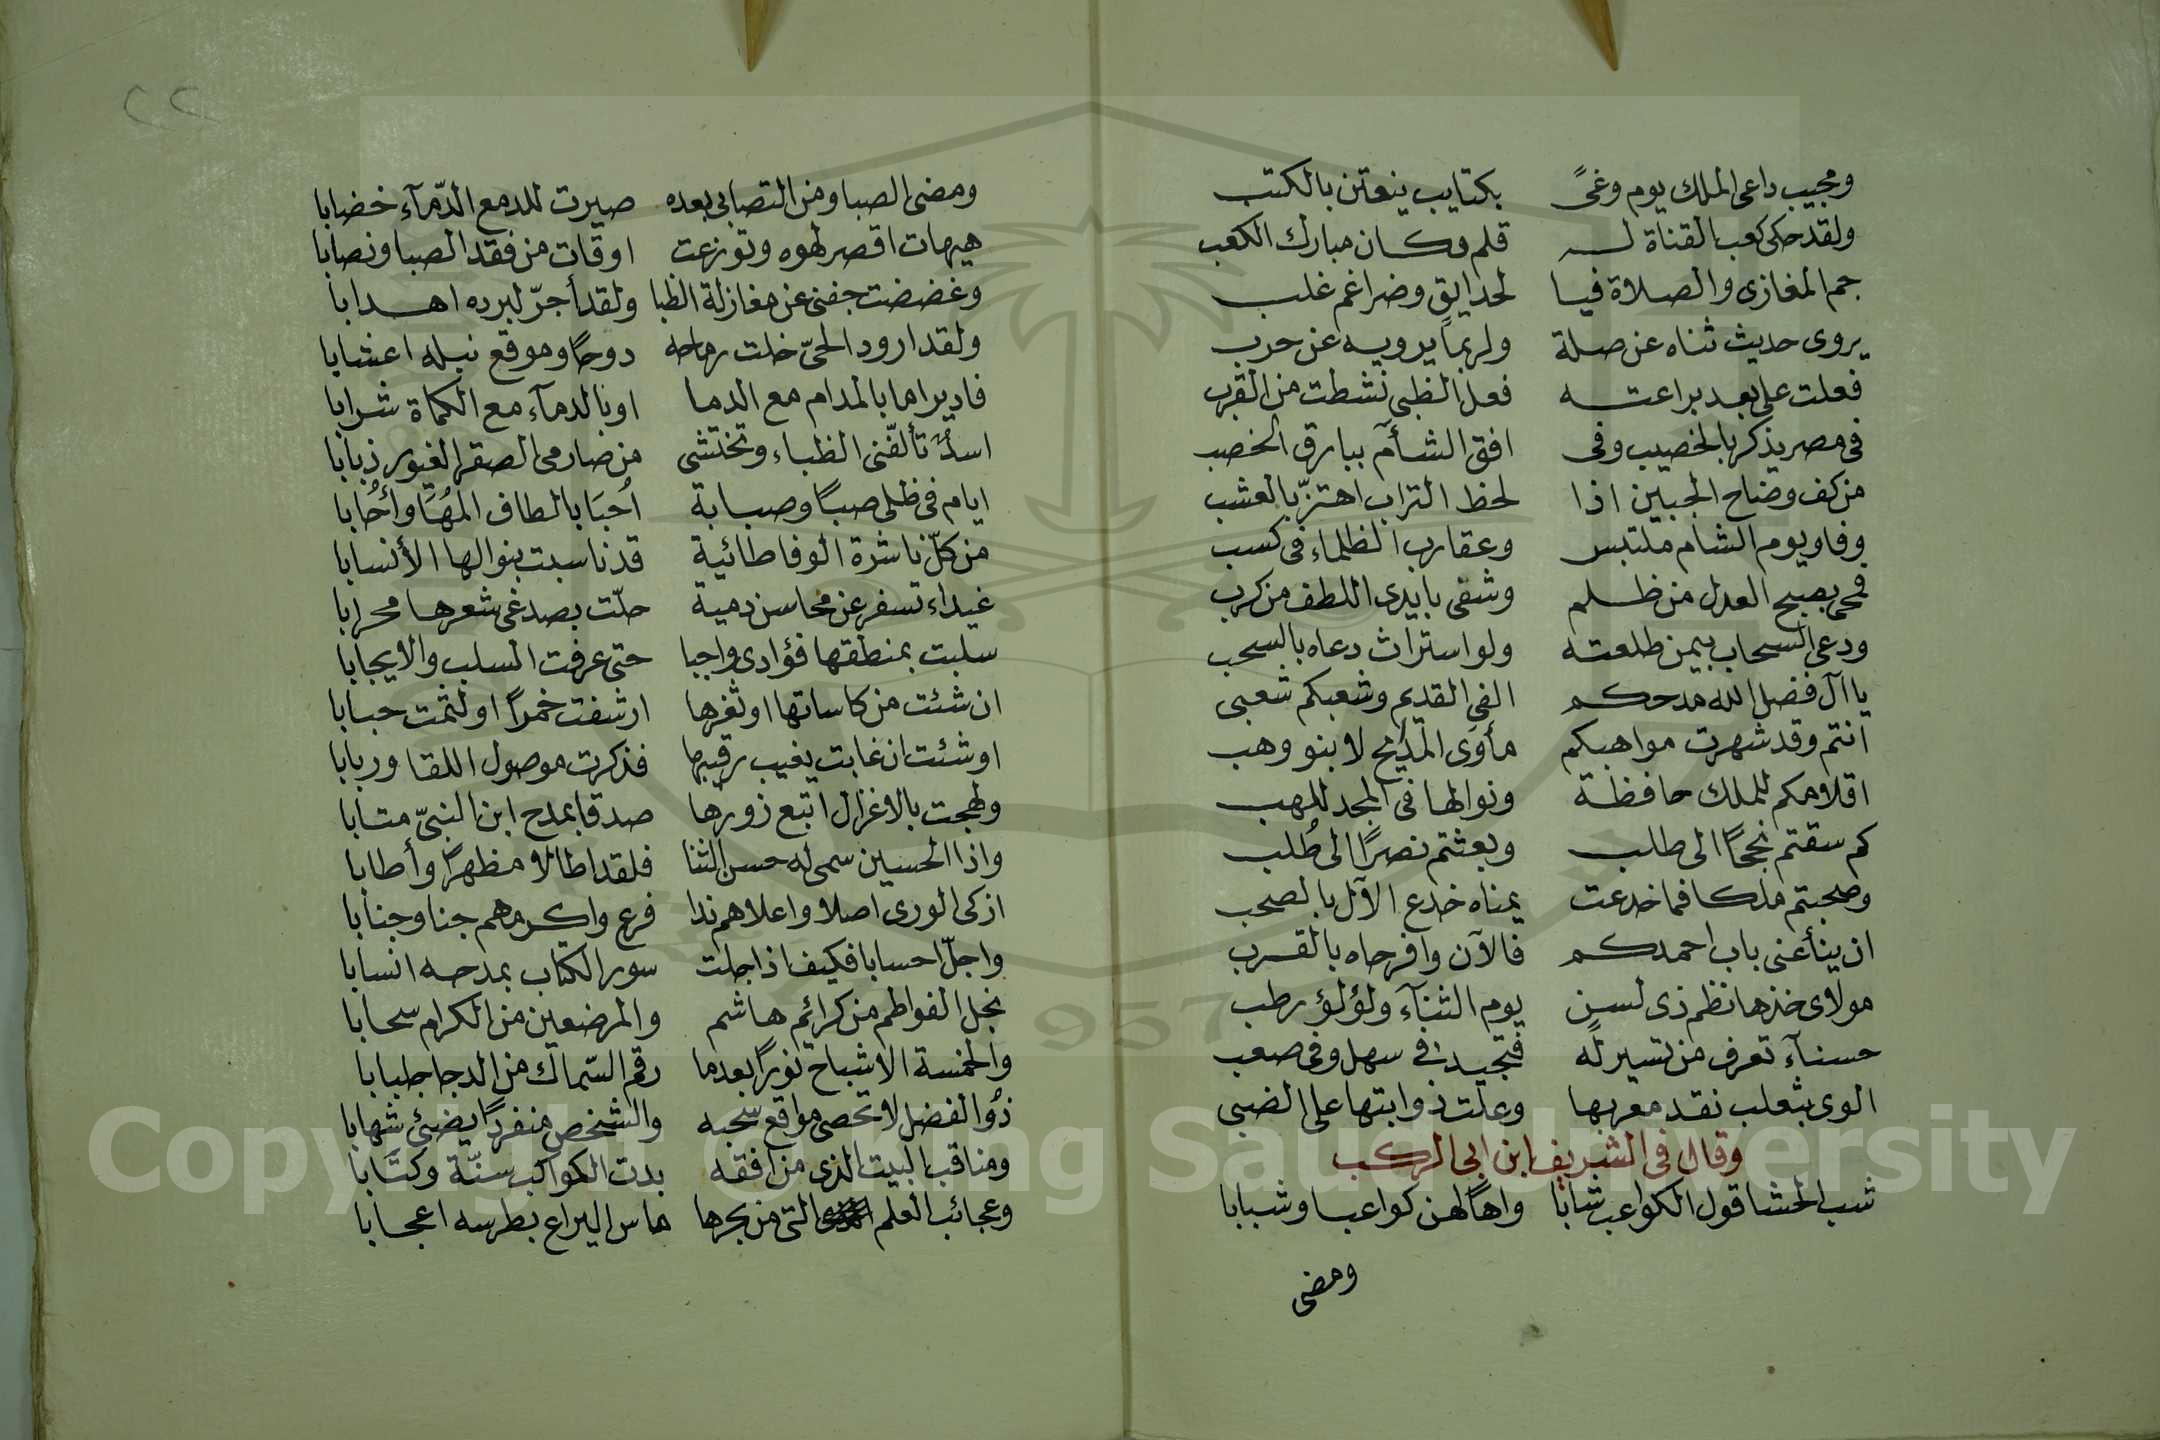 ومجيب داعى الملك يوم وغىً بكتايب ينعتن بالكتب
ولقد حكى كعب القناة له قلم وكان مبارك الكعب
جم المغازى والصلاة فيا لحدايق وضراغم غلب
يروى حديث ثناه عن صلة ولربما يرويه عن حرب
فعلت على بعد براعته فعل الظبى نشطت من القرب
فى مصر يذكر بالخصيب وفى افق الشأم ببارق الخصب
من كف وضاح الجبين اذا لحظ التراب اهتزّ بالعشب
وفا ويوم الشام ملتبس وعقارب الظلماء فى كسب
فمحى بصبح العدل من ظلم وشفى بايدى اللطف من كرب
ودعى السحاب بيمن طلعته ولو استراث دعاه بالسحب
يا آل فضل الله مدحكم الفى القديم وشعبكم شعبى
انتم وقد شهرت مواهبكم مأوى المديح لا بنو وهب
اقلامكم للملك حافظة ونوالها فى المجد للهب
كم سقتم نجحًا الى طلب وبعثتم نصرًا الى طُلب
وصحبتم ملكا فما خدعت يمناه خدع الآل بالصحب
ان ينأ عنى باب احمدكم فالآن وافرحاه بالقرب
مولاى خذها نظم ذى لسن يوم الثنآء ولؤلؤ رطب
حسنآء تعرف من تسير له فتجيد فى سهل وفى صعب
الوى بثعلب نقد معربها وعلت ذوابتها على الضبى
وقال فى الشريف ابن ابى الركب
شب الحشا قول الكواعب شابا واهًا لهن كواعبا وشبابا
ومضى
٢٢
ومضى الصبا ومن التصابى بعده صيرت للدمع الدّمآء خضابا
هيهات اقصر لهوه وتوزعت اوقات من فقد الصبا ونصابا
وغضضت جفنى عن مغازلة الظبا ولقد أجرّ لبرده اهدابا
ولقد ارود الحىّ خلت رماحه دوحًا وموقع نبله اعشابا
فاديراما بالمدام مع الدما اوبالدمآء مع الكماة شرابا
اسدٌ تألفنى الظباء وتختشى من صارمى الصقر الغيور ذبابا
ايام فى ظلى صبًا وصبابة اُحبَا بالطاف المُهَا وأُحُابا
من كلّ ناشرة الوفا طائية قد ناسبت بنوالها الأنسابا
غيداء تسفر عن محاسن دمية حلّت بصدغى شعرها محرابا
سلبت بمنطقها فؤادى واجبا حتى عرفت السلب والايجابا
ان شئت من كاساتها او ثغرها ارشفت خمرًا او لثمت حبابا
او شئت ان غابت يغيب رقيبها فذكرت موصول اللقا وربابا
ولهجت بالاغزال اتبع زورها صدقا بمدح ابن النبىّ متابا
واذا الحسين سمى له حسن الثنا فلقد اطالا مظهرًا وأطابا
ازكى الورى اصلا واعلاهم ندا فرع واكرمهم جنا وجنابا
واجلّ احسابا فكيف اذا جلت سور الكتاب بمدحه انسابا
نجل الفواطم من كرائم هاشم والمرضعين من الكرام سحابا
والخمسة الاشباح نورًا بعدما رقم السّماك من الدجا جلبابا
ذُو الفضل لا تحصى مواقع سحبه والشخص منفردًا يضئ شهابا
ومناقب البيت الذى من افقه بدت الكواكب سنّة وكتابا
وعجائب العلم التى من بحرها ماس اليراع بطرسه اعجابا